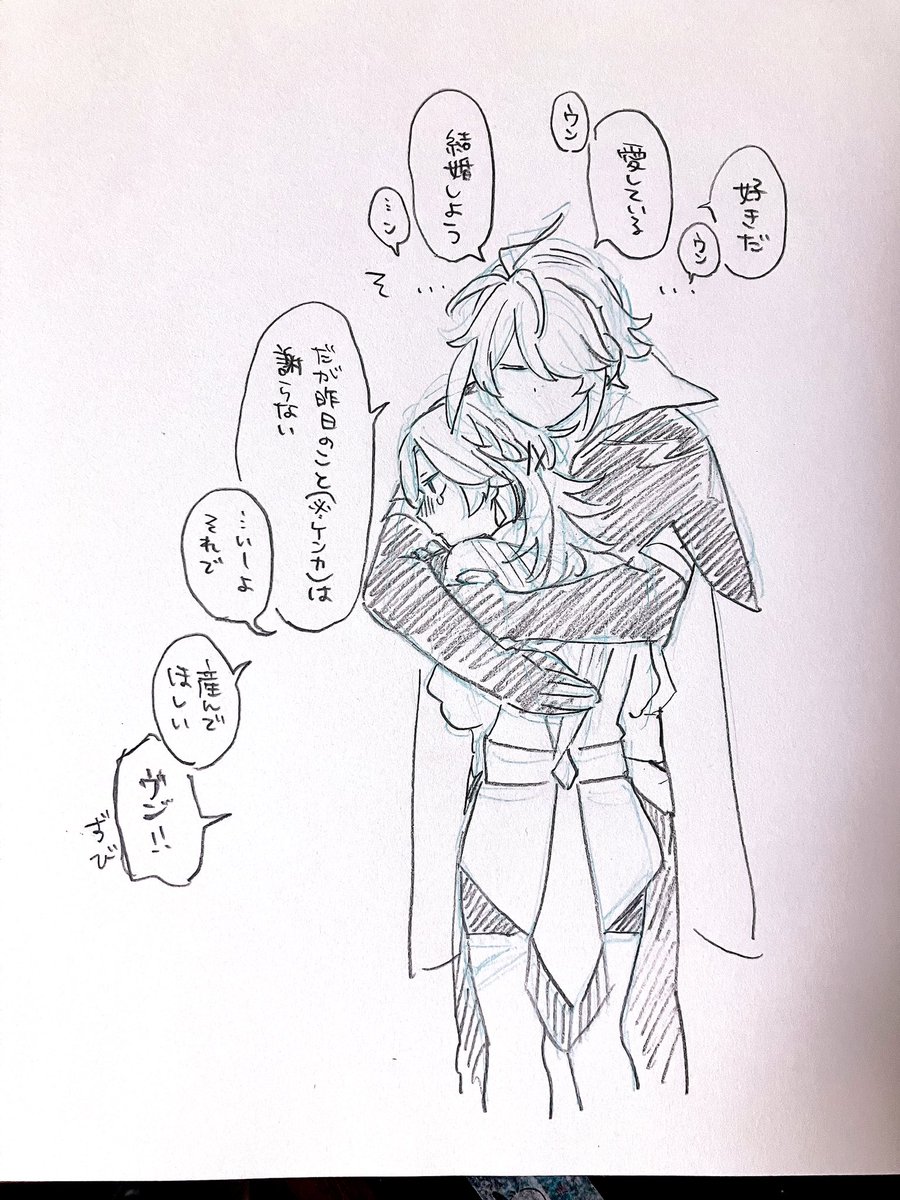 好きだ
ウン
愛している
ウン
結婚しよう
…ン
だが昨日のこと(※ケンカ)は
謝らない
…いーよ
それで
産んで
ほしい
ヴン!!
ずび